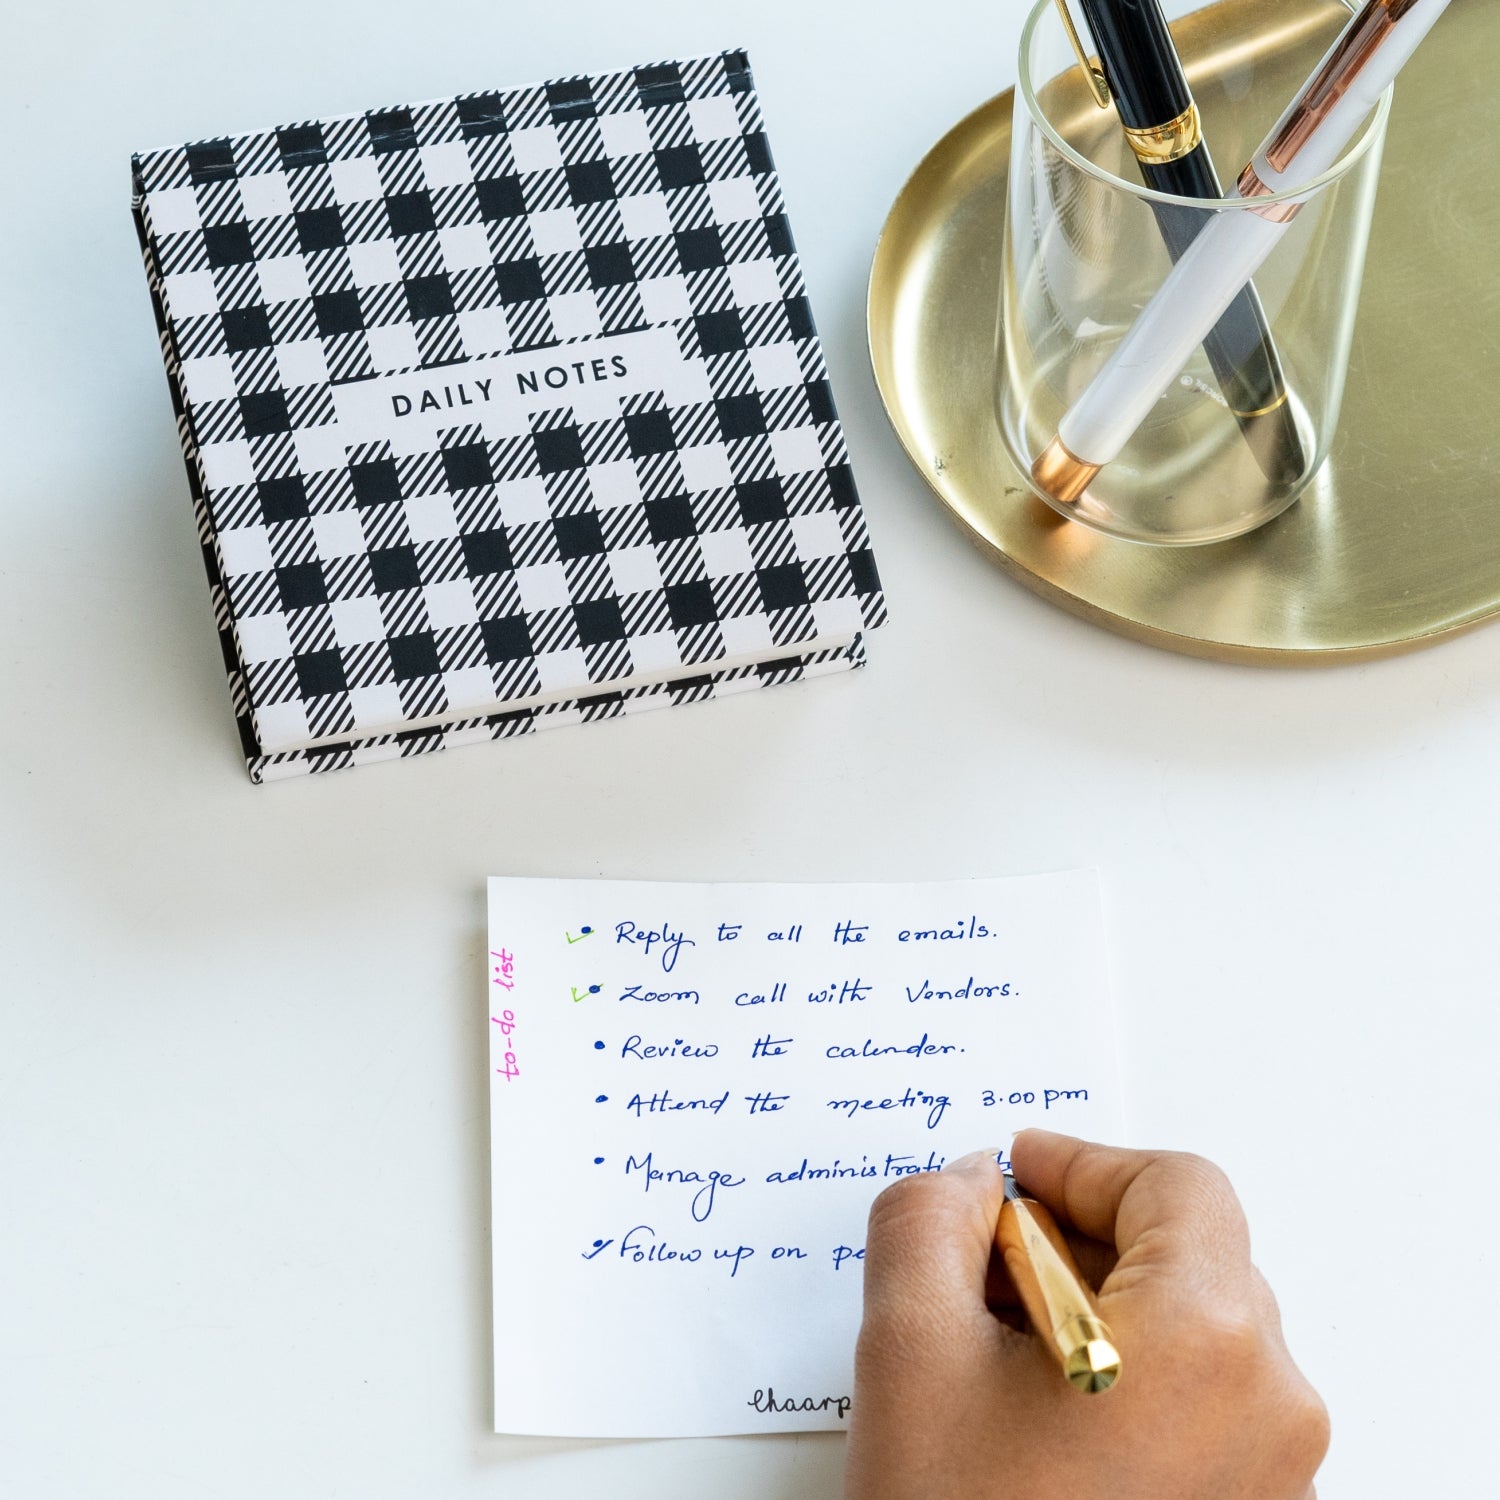 DAILY NOTES
to-do list
Reply to all the emails.
Zoom call with Vendors.
Review the calender.
Attend the meeting 3.00 pm
Manage
Follow up on